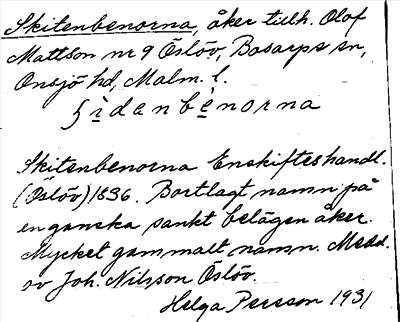 Skitenbenorna, åker tillh. Olof
Mattson nr 9 Öslöv, Bosarps sn,
Onsjö hd, Malm. l.
ʃìdanbènorna
Skitenbenorna Enskifteshandl.
(Öslöv) 1836. Bortlagt namn på
en ganska sankt belägen åker.
Mycket gammalt namn. Medd.
av Joh. Nilsson Öslöv.
Helga Persson 1931